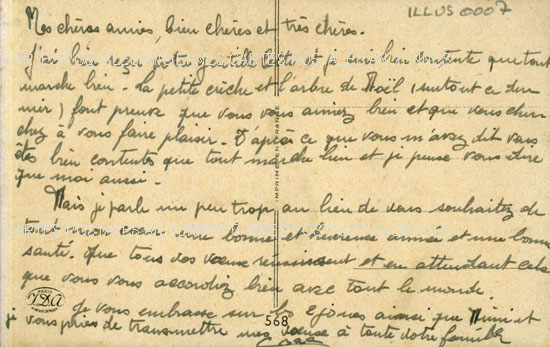 ILLUS 0007
Mes chères amies, bien chères et très chères.
J'ai bien reçu votre gentille lettre et je suis bien contente que tout
marche bien. La petite crèche et l'arbre de Noël (surtout ce der
nier) font preuve que vous vous aimez bien et que vous cher
chez à vous faire plaisir. D'après ce que vous m'avez dit vous
êtes bien contentes que tout marche bien et je peux vous dire
que moi aussi.
Mais je parle un peu trop au lieu de vous souhaitez de
tout mon cœur une bonne et heureuse année et une bonne
santé. Que tous vos vœux réussissent et en attendant cela
que vous vous accordiez bien avec tout le monde.
Je vous embrasse sur les joues ainsi que Mimi et
je vous prie de transmettre mes vœux à toute votre famille
IMPRIMÉ EN FRANCE
PARIS
568